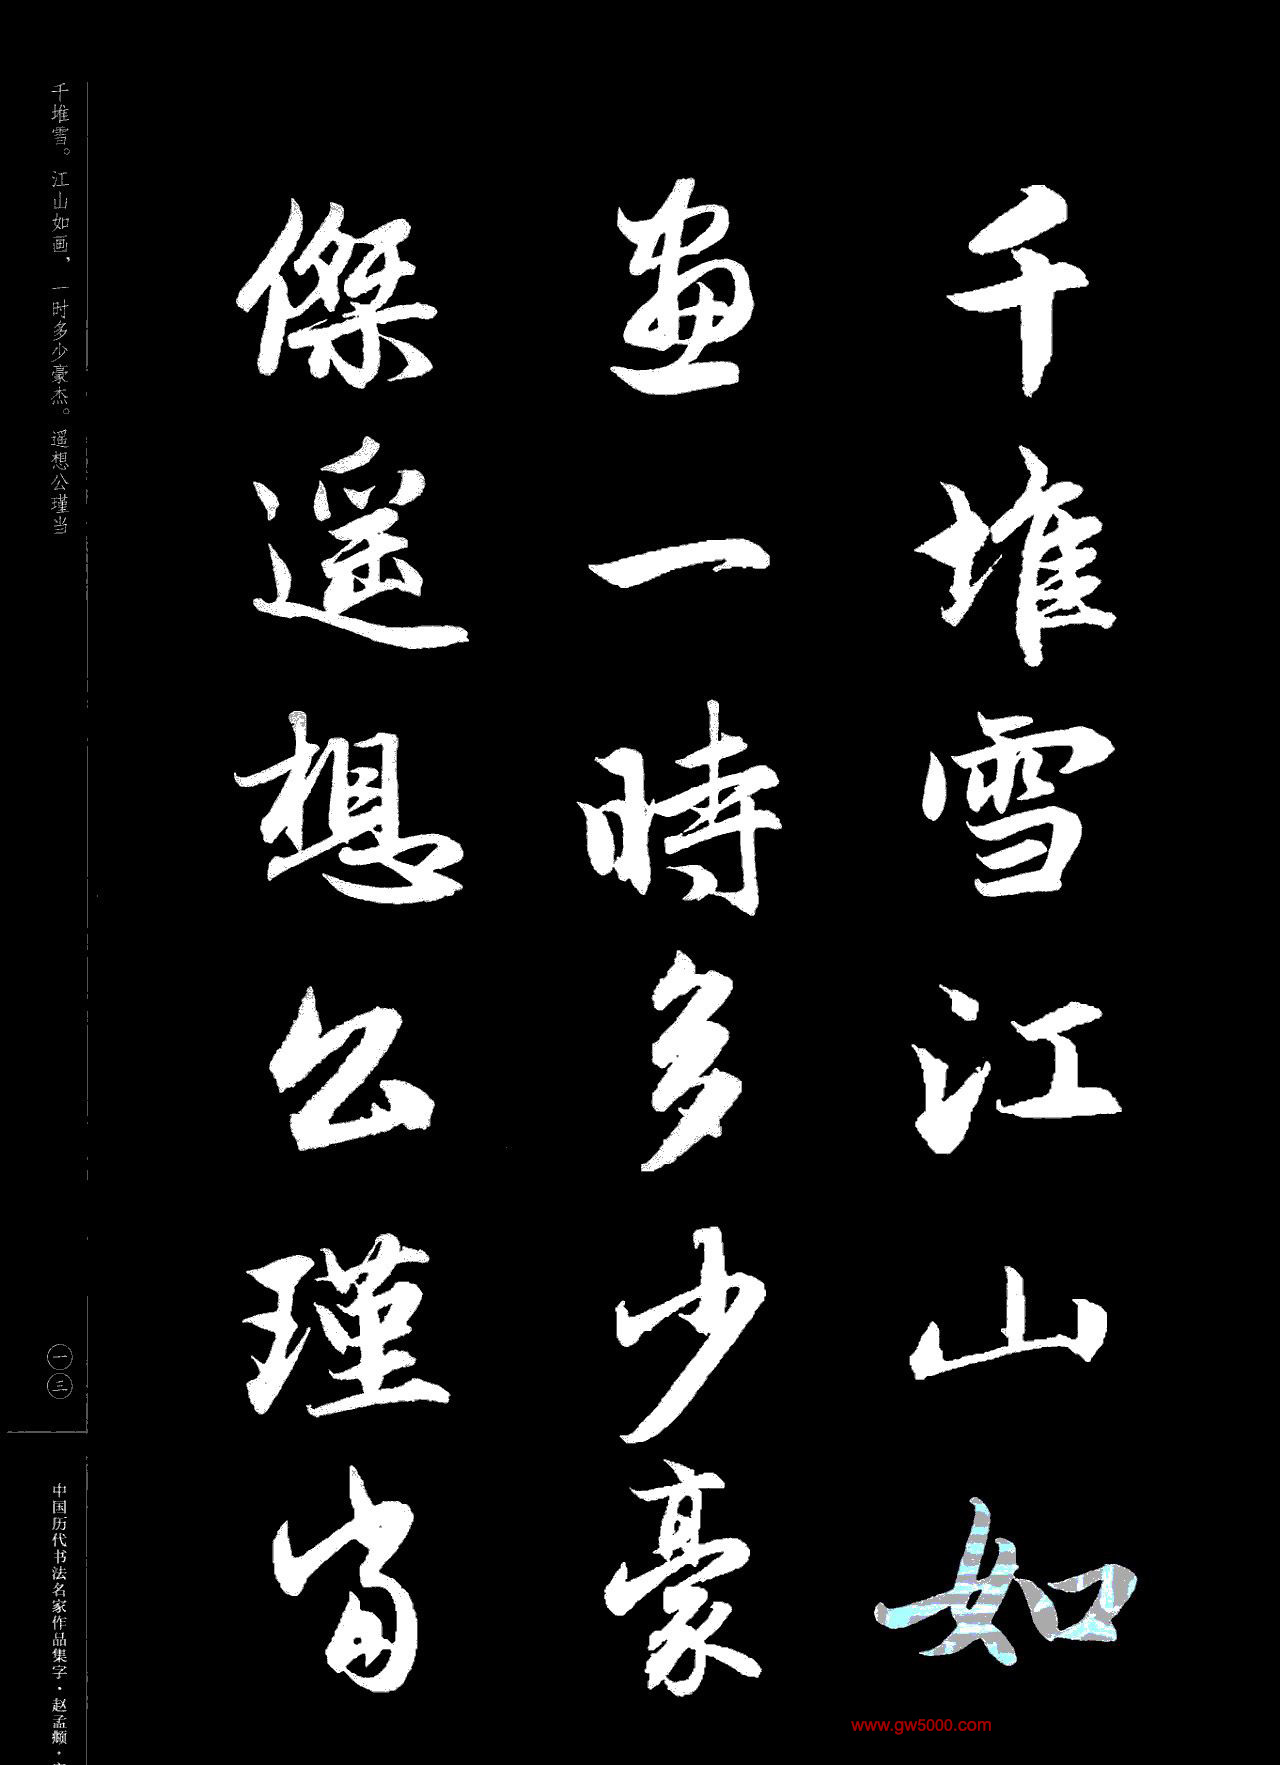 千堆雪江山如
畫一時多少豪
傑遥想公瑾當
千堆雪。江山如画，一时多少豪杰。遥想公瑾当
一三
中国历代书法名家作品集字·赵孟頫·
www.gw5000.com